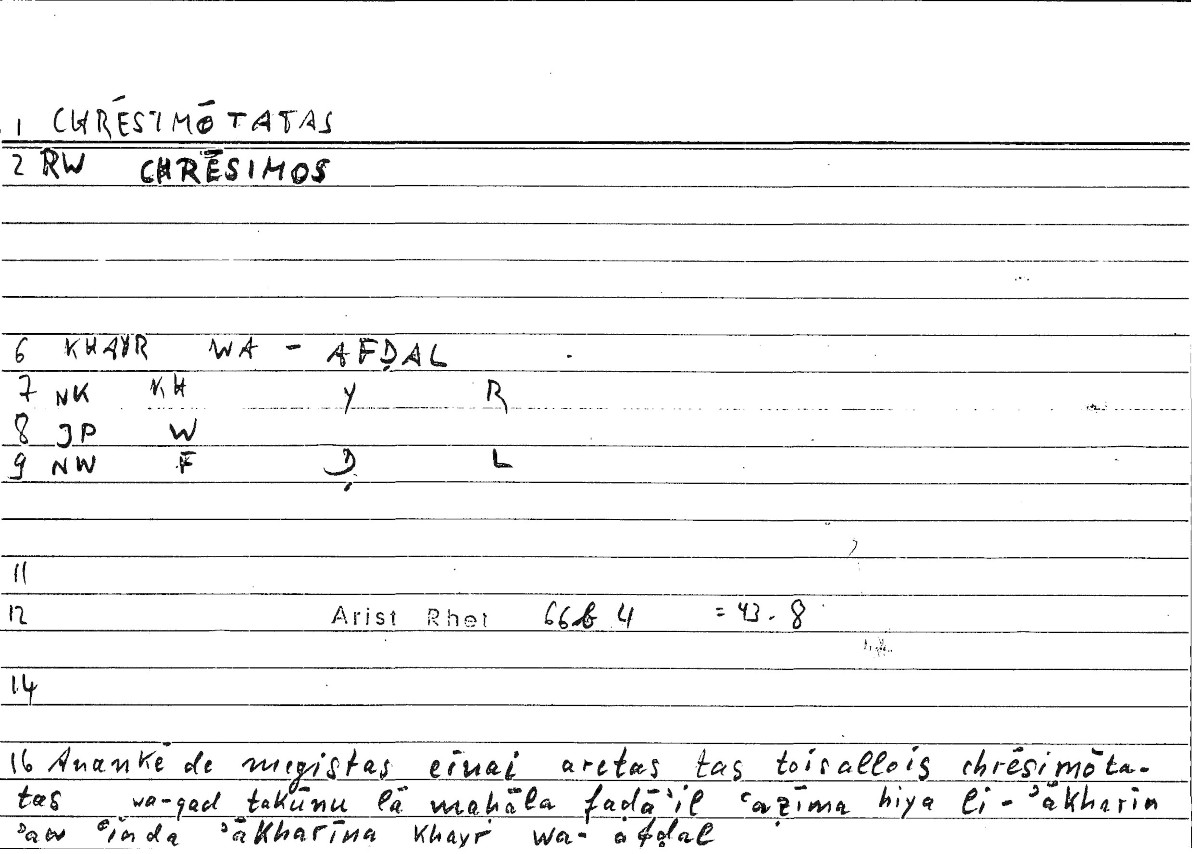 1 CHRĒSIMŌTATAS
2 RW CHRĒSIMOS
6 KHAYR WA - AFḌAL
7 NK KH Y R
8 JP W
9 NW F Ḍ L
11
12 Arist Rhet 66b 4 = 43.8
14
16 Anankē de megistas einai aretas tas toisallois chrēsimōta-
tas wa-qad takūnu lā maḥāla faḍāʾil ʿaẓīma hiya li-ʾākharīn
ʾaw ʿinda ʾākharīna khayr wa- afḍal